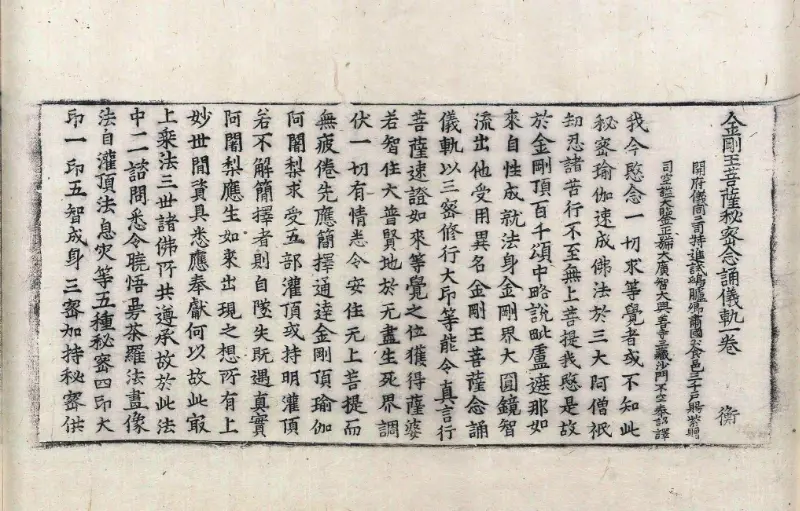 金剛王菩薩秘密念誦儀軌一卷 衡
開府儀同三司特進試鴻臚卿肅國公食邑三千戶賜紫贈
司空謚大鑒正號大廣智大興善寺三藏沙門不空奉詔譯
我今愍念一切求等覺者或不知此
秘密瑜伽速成佛法於三大阿僧祇
劫忍諸苦行不至無上菩提我愍是故
於金剛頂百千頌中略說毗盧遮那如
來自性成就法身金剛界大圓鏡智
流出他受用異名金剛王菩薩念誦
儀軌以三密修行大印等能令真言行
菩薩速證如來等覺之位獲得薩婆
若智住大普賢地於无盡生死界調
伏一切有情悉令安住无上菩提而
無疲倦先應簡擇通達金剛頂瑜伽
阿闍梨求受五部灌頂或持明灌頂
若不解簡擇者則自墜失既遇真實
阿闍梨應生如來出現之想所有上
妙世間資具悉應奉獻何以故此最
上乘法三世諸佛所共遵承故於此法
中二諮問悉令曉悟曼荼羅法畫像
法自灌頂法息灾等五種秘密四印大
印一印五智成身三密加持秘密供